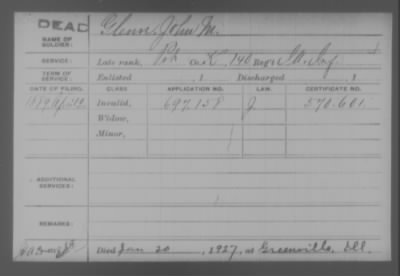 DEAD
NAME OF SOLDIER: Glenn, John M.
SERVICE: Late rank, Pvt Co. K, 140 Reg't Ill. Inf.
TERM OF SERVICE: Enlisted , 1 Discharged , 1
DATE OF FILING. CLASS APPLICATION NO. LAW. CERTIFICATE NO.
1889 Invalid, 697.158 J 570.601
Widow,
Minor,
ADDITIONAL SERVICES:
REMARKS:
Died Jan 20, 1927, at Greenville, Ill.